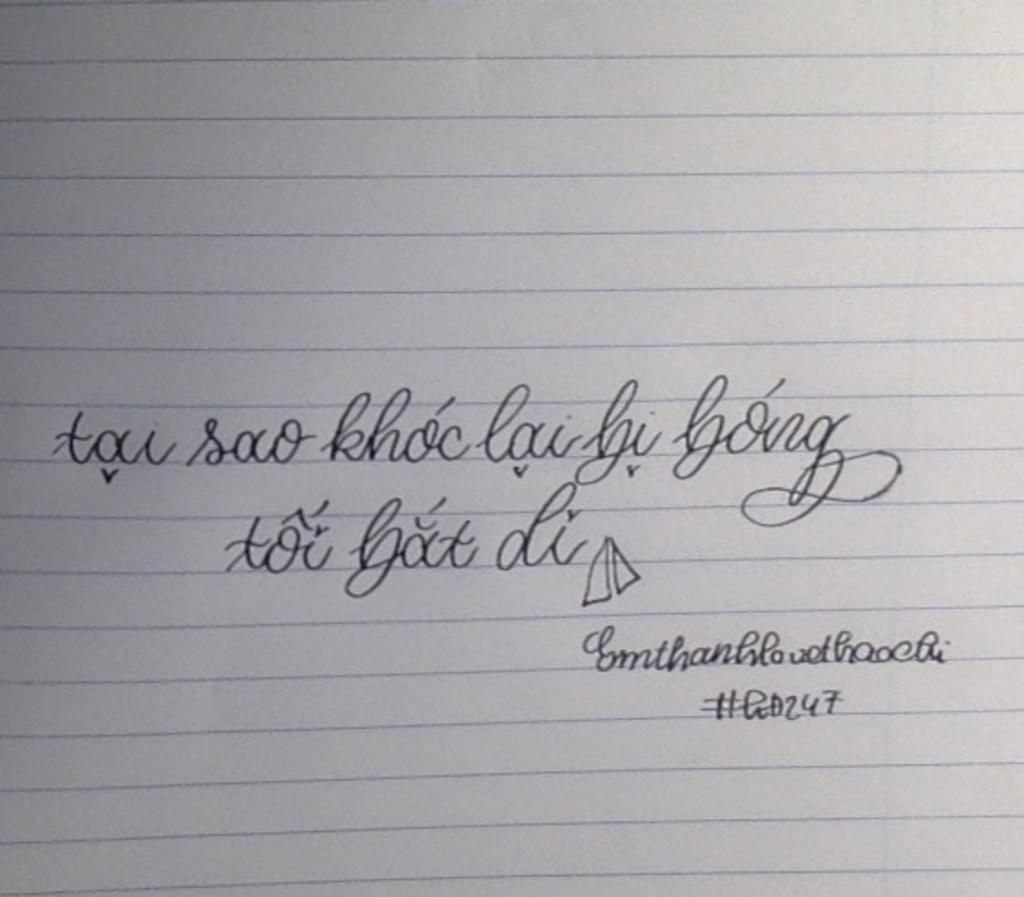 tại sao khóc lại bị bóng
tối bắt đi
Emthanhlovethaochi
#GD247